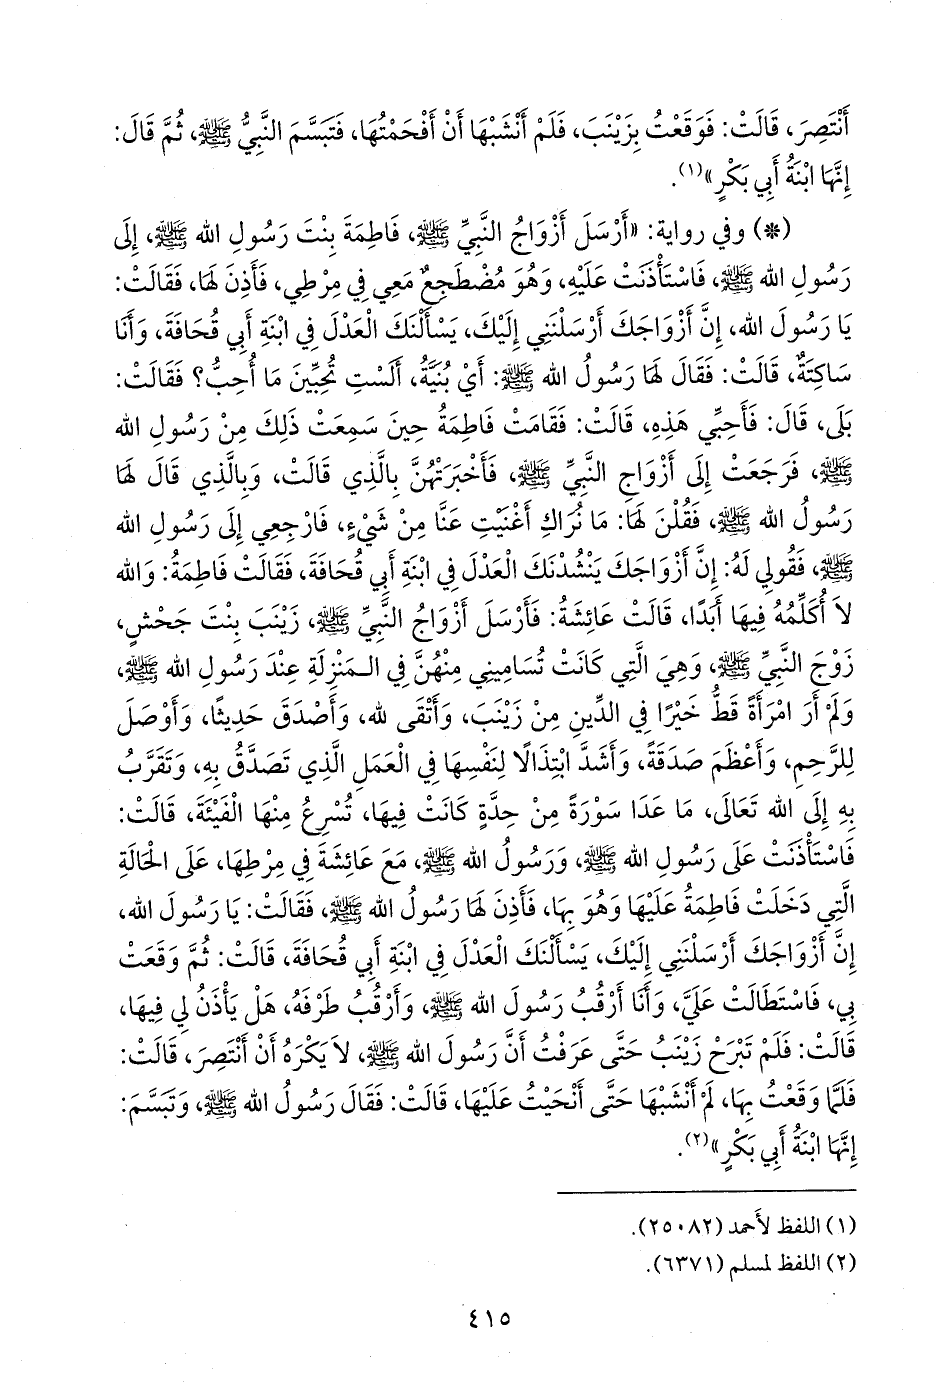 أَنْتَصِرَ، قَالَتْ: فَوَقَعْتُ بِزَيْنَبَ، فَلَمْ أَنْشَبْهَا أَنْ أَفْحَمْتُهَا، فَتَبَسَّمَ النَّبِيُّ ﷺ، ثُمَّ قَالَ:
إِنَّهَا ابْنَةُ أَبِي بَكْرٍ»(١).
(*) وفي رواية: «أَرْسَلَ أَزْوَاجُ النَّبِيِّ ﷺ، فَاطِمَةَ بِنْتَ رَسُولِ الله ﷺ، إِلَى
رَسُولِ الله ﷺ، فَاسْتَأْذَنَتْ عَلَيْهِ، وَهُوَ مُضْطَجِعٌ مَعِي فِي مِرْطِي، فَأَذِنَ لَهَا، فَقَالَتْ:
يَا رَسُولَ الله، إِنَّ أَزْوَاجَكَ أَرْسَلْنَنِي إِلَيْكَ، يَسْأَلْنَكَ الْعَدْلَ فِي ابْنَةِ أَبِي قُحَافَةَ، وَأَنَا
سَاكِتَةٌ، قَالَتْ: فَقَالَ لَهَا رَسُولُ الله ﷺ: أَيْ بُنَيَّةُ، أَلَسْتِ تُحِبِّينَ مَا أُحِبُّ؟ فَقَالَتْ:
بَلَى، قَالَ: فَأَحِبِّي هَذِهِ، قَالَتْ: فَقَامَتْ فَاطِمَةُ حِينَ سَمِعَتْ ذَلِكَ مِنْ رَسُولِ الله
ﷺ، فَرَجَعَتْ إِلَى أَزْوَاجِ النَّبِيِّ ﷺ، فَأَخْبَرَتْهُنَّ بِالَّذِي قَالَتْ، وَبِالَّذِي قَالَ لَهَا
رَسُولُ الله ﷺ، فَقُلْنَ لَهَا: مَا نُرَاكِ أَغْنَيْتِ عَنَّا مِنْ شَيْءٍ، فَارْجِعِي إِلَى رَسُولِ الله
ﷺ، فَقُولِي لَهُ: إِنَّ أَزْوَاجَكَ يَنْشُدْنَكَ الْعَدْلَ فِي ابْنَةِ أَبِي قُحَافَةَ، فَقَالَتْ فَاطِمَةُ: وَالله
لاَ أُكَلِّمُهُ فِيهَا أَبَدًا، قَالَتْ عَائِشَةُ: فَأَرْسَلَ أَزْوَاجُ النَّبِيِّ ﷺ، زَيْنَبَ بِنْتَ جَحْشٍ،
زَوْجَ النَّبِيِّ ﷺ، وَهِيَ الَّتِي كَانَتْ تُسَامِينِي مِنْهُنَّ فِي الـمَنْزِلَةِ عِنْدَ رَسُولِ الله ﷺ،
وَلَمْ أَرَ امْرَأَةً قَطُّ خَيْرًا فِي الدِّينِ مِنْ زَيْنَبَ، وَأَتْقَى لله، وَأَصْدَقَ حَدِيثًا، وَأَوْصَلَ
لِلرَّحِمِ، وَأَعْظَمَ صَدَقَةً، وَأَشَدَّ ابْتِذَالًا لِنَفْسِهَا فِي الْعَمَلِ الَّذِي تَصَدَّقُ بِهِ، وَتَقَرَّبُ
بِهِ إِلَى الله تَعَالَى، مَا عَدَا سَوْرَةً مِنْ حِدَّةٍ كَانَتْ فِيهَا، تُسْرِعُ مِنْهَا الْفَيْئَةَ، قَالَتْ:
فَاسْتَأْذَنَتْ عَلَى رَسُولِ الله ﷺ، وَرَسُولُ الله ﷺ، مَعَ عَائِشَةَ فِي مِرْطِهَا، عَلَى الْحَالَةِ
الَّتِي دَخَلَتْ فَاطِمَةُ عَلَيْهَا وَهُوَ بِهَا، فَأَذِنَ لَهَا رَسُولُ الله ﷺ، فَقَالَتْ: يَا رَسُولَ الله،
إِنَّ أَزْوَاجَكَ أَرْسَلْنَنِي إِلَيْكَ، يَسْأَلْنَكَ الْعَدْلَ فِي ابْنَةِ أَبِي قُحَافَةَ، قَالَتْ: ثُمَّ وَقَعَتْ
بِي، فَاسْتَطَالَتْ عَلَيَّ، وَأَنَا أَرْقُبُ رَسُولَ الله ﷺ، وَأَرْقُبُ طَرْفَهُ، هَلْ يَأْذَنُ لِي فِيهَا،
قَالَتْ: فَلَمْ تَبْرَحْ زَيْنَبُ حَتَّى عَرَفْتُ أَنَّ رَسُولَ الله ﷺ، لاَ يَكْرَهُ أَنْ أَنْتَصِرَ، قَالَتْ:
فَلَمَّا وَقَعْتُ بِهَا، لَمْ أَنْشَبْهَا حَتَّى أَنْحَيْتُ عَلَيْهَا، قَالَتْ: فَقَالَ رَسُولُ الله ﷺ، وَتَبَسَّمَ:
إِنَّهَا ابْنَةُ أَبِي بَكْرٍ»(٢).
(١) اللفظ لأَحمد (٢٥٠٨٢).
(٢) اللفظ لمسلم (٦٣٧١).
٤١٥